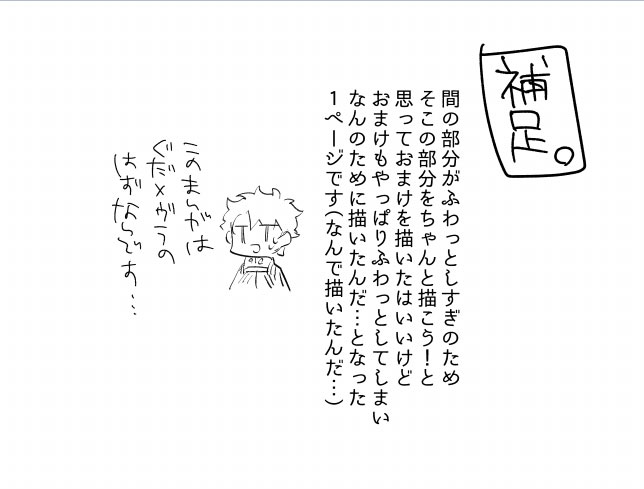 補足。
間の部分がふわっとしすぎのため
そこの部分をちゃんと描こう！と
思っておまけを描いたはいいけど
おまけもやっぱりふわっとしてしまい
なんのために描いたんだ…となった
１ページです(なんで描いたんだ…)
このまんがは
ぐだ×ヴラの
はずなんです…